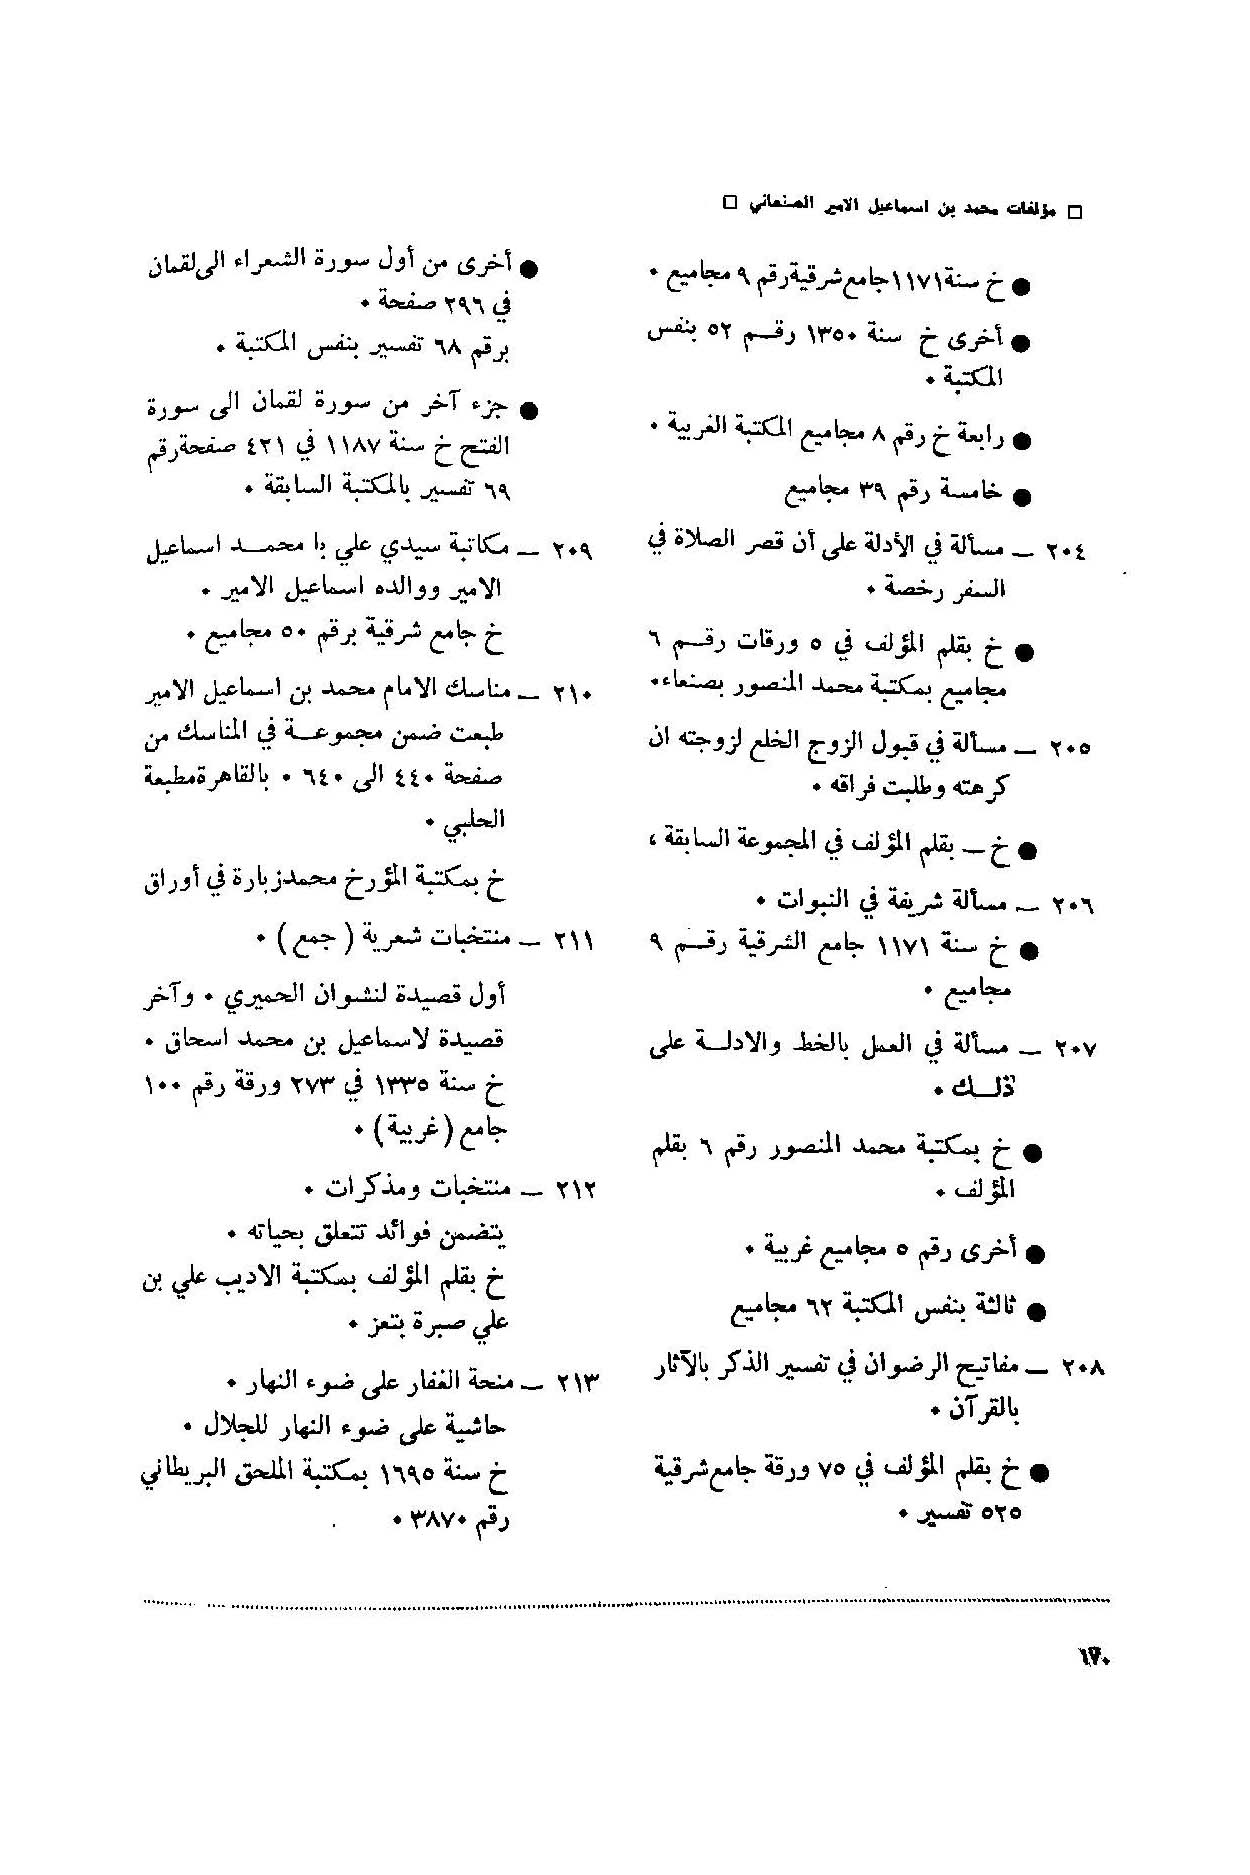 □ مؤلفات محمد بن اسماعيل الامير الصنعاني □
● خ سنة ١١٧١ جامع شرقية رقم ٩ مجاميع ٠
● أخرى خ سنة ١٣٥٠ رقم ٥٢ بنفس
المكتبة ٠
● رابعة خ رقم ٨ مجاميع المكتبة الغربية ٠
● خامسة رقم ٣٩ مجاميع
٢٠٤ ـ مسألة في الأدلة على أن قصر الصلاة في
السفر رخصة ٠
● خ بقلم المؤلف في ٥ ورقات رقم ٦
مجاميع بمكتبة محمد المنصور بصنعاء٠
٢٠٥ ـ مسألة في قبول الزوج الخلع لزوجته ان
كرهته وطلبت فراقه ٠
● خ ـ بقلم المؤلف في المجموعة السابقة ،
٢٠٦ ـ مسألة شريفة في النبوات ٠
● خ سنة ١١٧١ جامع الشرقية رقم ٩
مجاميع ٠
٢٠٧ ـ مسألة في العمل بالخط والادلة على
ذلك ٠
● خ بمكتبة محمد المنصور رقم ٦ بقلم
المؤلف ٠
● أخرى رقم ٥ مجاميع غربية ٠
● ثالثة بنفس المكتبة ٦٢ مجاميع
٢٠٨ ـ مفاتيح الرضوان في تفسير الذكر بالآثار
بالقرآن ٠
● خ بقلم المؤلف في ٧٥ ورقة جامع شرقية
٥٢٥ تفسير ٠
● أخرى من أول سورة الشعراء الى لقمان
في ٢٩٦ صفحة ٠
برقم ٦٨ تفسير بنفس المكتبة ٠
● جزء آخر من سورة لقمان الى سورة
الفتح خ سنة ١١٨٧ في ٤٢١ صفحة رقم
٦٩ تفسير بالمكتبة السابقة ٠
٢٠٩ ـ مكاتبة سيدي علي با محمد اسماعيل
الامير ووالده اسماعيل الامير ٠
خ جامع شرقية برقم ٥٠ مجاميع ٠
٢١٠ ـ مناسك الامام محمد بن اسماعيل الامير
طبعت ضمن مجموعة في المناسك من
صفحة ٤٤٠ الى ٦٤٠ ٠ بالقاهرة مطبعة
الحلبي ٠
خ بمكتبة المؤرخ محمد زبارة في أوراق
٢١١ ـ منتخبات شعرية ( جمع ) ٠
أول قصيدة لنشوان الحميري ٠ وآخر
قصيدة لاسماعيل بن محمد اسحاق ٠
خ سنة ١٣٣٥ في ٢٧٣ ورقة رقم ١٠٠
جامع ( غربية ) ٠
٢١٢ ـ منتخبات ومذكرات ٠
يتضمن فوائد تتعلق بحياته ٠
خ بقلم المؤلف بمكتبة الاديب علي بن
علي صبرة بتعز ٠
٢١٣ ـ منحة الغفار على ضوء النهار ٠
حاشية على ضوء النهار للجلال ٠
خ سنة ١٦٩٥ بمكتبة الملحق البريطاني
رقم ٣٨٧٠ ٠